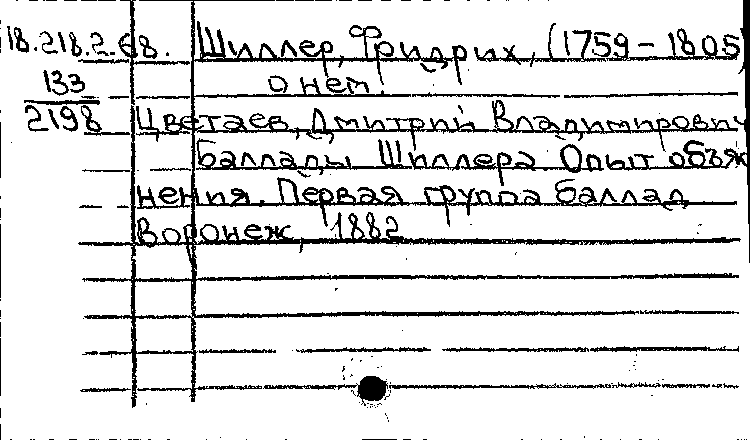 18.218.2.68. Шиллер, Фридрих, (1759 – 1805)
133 о нем:
2198 Цветаев, Дмитрий Владимирович
Баллады Шиллера. Опыт объяс
нения. Первая группа баллад
Воронеж, 1882